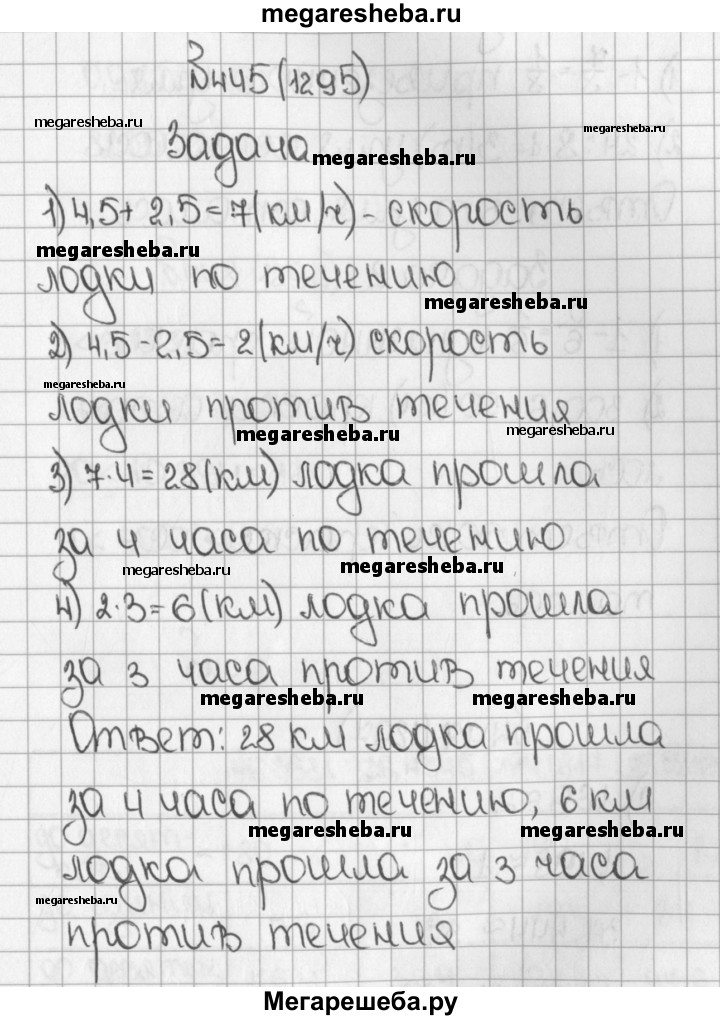 megaresheba.ru
№445(1295)
megaresheba.ru
megaresheba.ru
Задача
megaresheba.ru
1) 4,5+2,5=7(км/ч)-скорость
megaresheba.ru
лодки по течению
megaresheba.ru
2) 4,5-2,5=2(км/ч) скорость
megaresheba.ru
лодки против течения
megaresheba.ru
megaresheba.ru
3) 7·4=28(км) лодка прошла
за 4 часа по течению
megaresheba.ru
megaresheba.ru
4) 2·3=6(км) лодка прошла
за 3 часа против течения
megaresheba.ru
megaresheba.ru
Ответ: 28 км лодка прошла
за 4 часа по течению, 6 км
megaresheba.ru
megaresheba.ru
лодка прошла за 3 часа
megaresheba.ru
против течения
Мегарешеба.ру